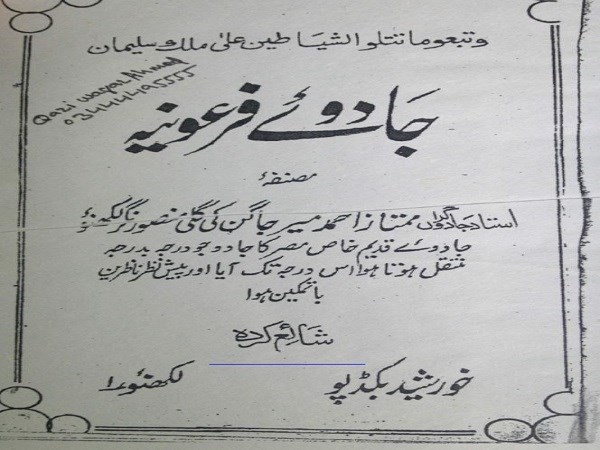 وتبعو ما تتلوا الشیاطین علیٰ ملک و سلیمان
Qazi Waqar Ahmad
03444495555
جادوئے فرعونیہ
مصنفۂ
استاد جادوگراں ممتاز احمد میر جاگن کی گلی منصور نگر لکھنؤ
جادوئے قدیم خاص مصر کا جادو جو درجہ بدرجہ
منتقل ہوتا ہوا اس درجہ تک آیا اور پیش نظر ناظرین
باتمکین ہوا
شائع کردہ
خورشید بکڈپو لکھنؤ